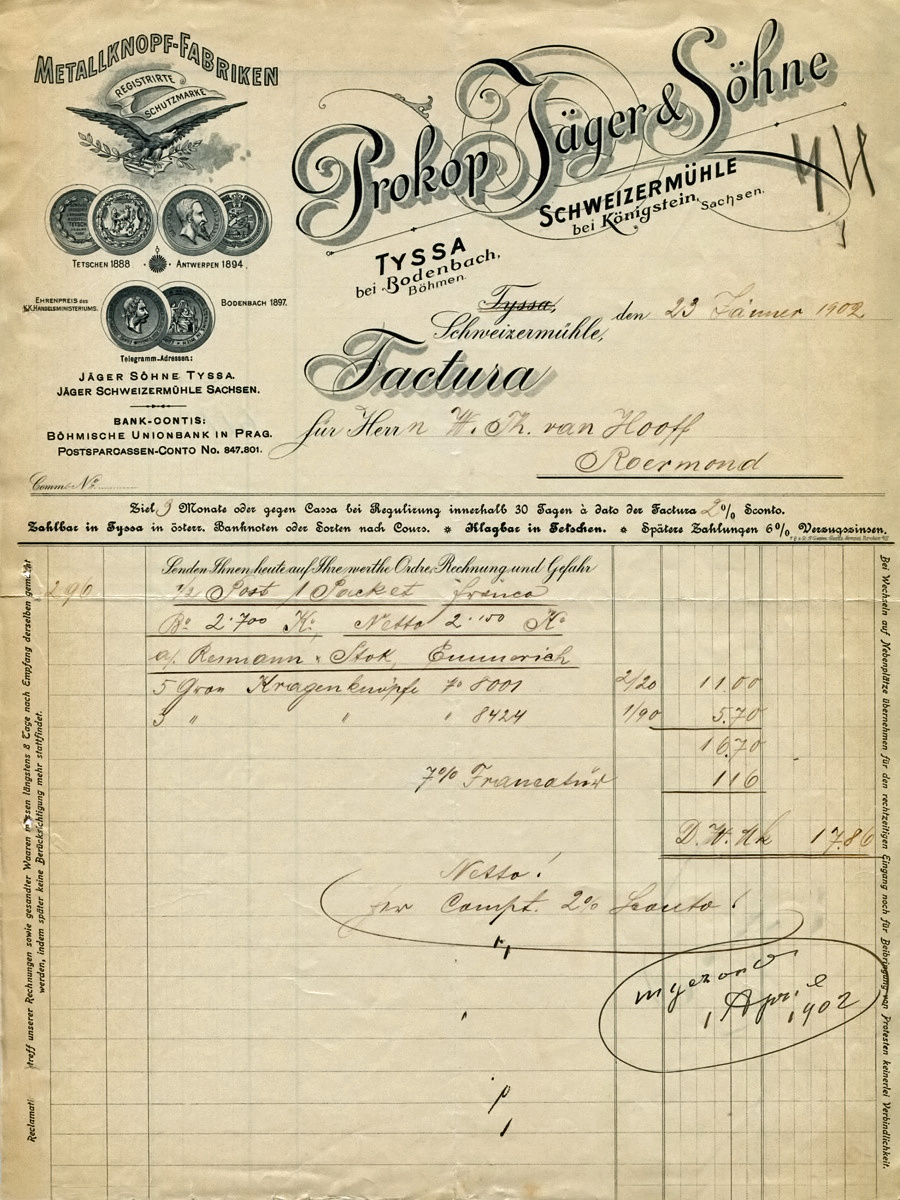 METALLKNOPF-FABRIKEN
REGISTRIRTE
SCHUTZMARKE
TETSCHEN 1888
ANTWERPEN 1894
EHRENPREIS des
K.K. HANDELSMINISTERIUMS.
BODENBACH 1897.
Telegramm-Adressen:
JÄGER SÖHNE TYSSA.
JÄGER SCHWEIZERMÜHLE SACHSEN.
BANK-CONTIS:
BÖHMISCHE UNIONBANK IN PRAG.
POSTSPARCASSEN-CONTO No. 847.801.
Prokop Jäger & Söhne
SCHWEIZERMÜHLE
bei Königstein, Sachsen.
TYSSA
bei Bodenbach,
Böhmen.
Tyssa,
Schweizermühle, den 23 Jänner 1902
Factura
für Herrn W. Th. van Hooff
Roermond
Comm. No.
Ziel 3 Monate oder gegen Cassa bei Regulirung innerhalb 30 Tagen à dato der Factura 2% Sconto.
Zahlbar in Tyssa in österr. Banknoten oder Sorten nach Cours. * Klagbar in Tetschen. * Spätere Zahlungen 6% Verzugszinsen.
Senden Ihnen heute auf Ihre werthe Ordre, Rechnung und Gefahr
296 Post 1 Packet franco
Bo 2.700 Ko. Netto 2.150 Ko
a/. Resmann & Stok, Emmerich
5 Gros Kragenknöpfe No 8001 2/20 11.00
3 " " " 8424 1/90 5.70
16.70
7% Francatur 1 16
D. W. Mk 17.86
Netto!
per Compt. 2% Sconto!
1 April
1902
Reclamati treff unserer Rechnungen sowie gesandter Waaren müssen längstens 8 Tage nach Empfang derselben gemacht
werden, indem später keine Berücksichtigung mehr stattfindet.
Bei Wechseln auf Nebenplätze übernehmen für den rechtzeitigen Eingang noch für Beibringung von Protesten keinerlei Verbindlichkeit.